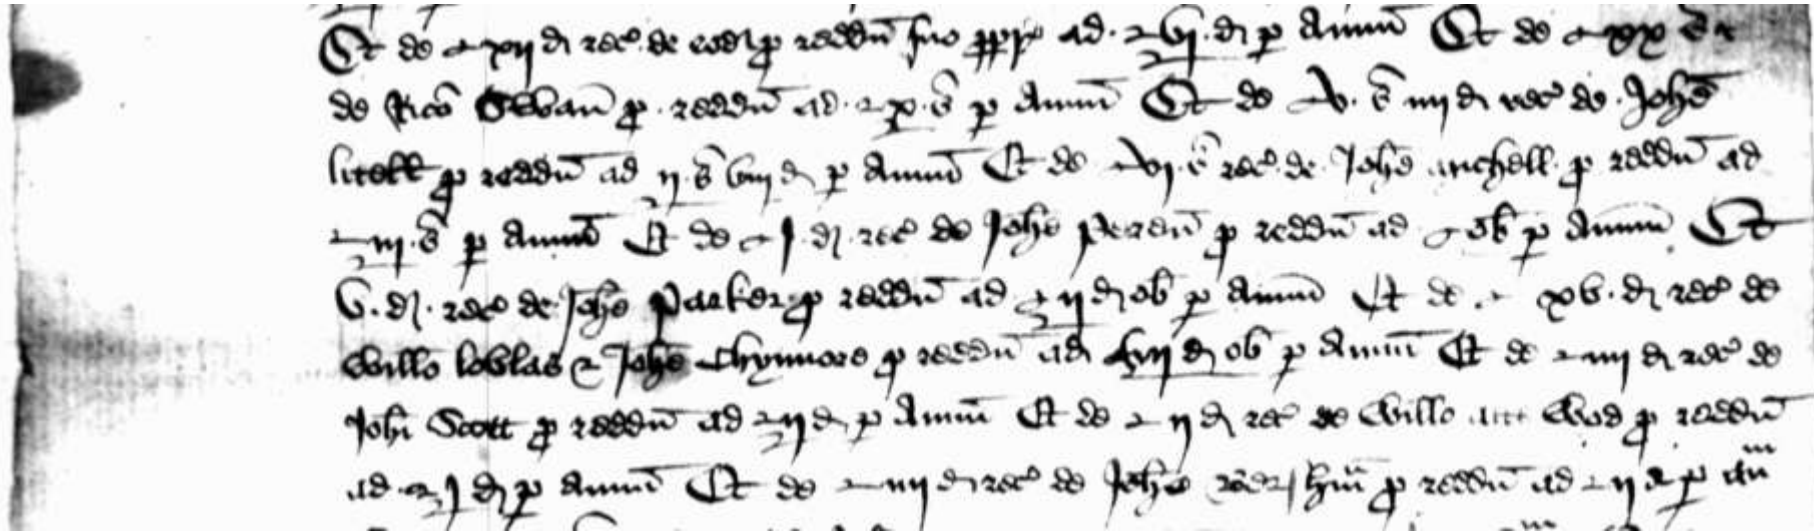 Et de xij d rec de eod p reddu suo ppr ad vj d p Annu Et de xx d
de Rico Swan p reddu ad x s p Annu Et de v s iiij d rec de Johe
litell p reddu ad ij s viij d p Annu Et de vj s rec de Johe Michell p reddu ad
iij s p Annu Et de j d rec de Johe p reddu ad ob p Annu Et
v d rec de Johe Parker p reddu ad ij d ob p Annu Et de xv d rec de
Willo loblas & Johe Chynnore p reddu ad vij d ob p Annu Et de iiij d rec de
Joh Scott p reddu ad ij d p Annu Et de ij d rec de Willo atte Wod p reddu
ad j d p Annu Et de iiij d rec de Johe p reddu ad ij d p Annu